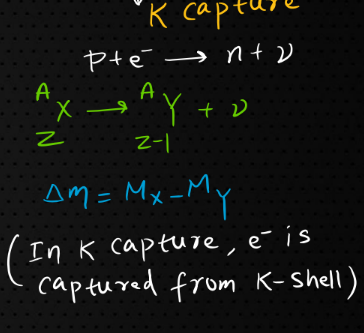 K capture
p + e⁻ → n + ν
ᴬ_Z X → ᴬ_Z-1 Y + ν
Δm = Mx - My
(In K capture, e⁻ is
captured from K-shell)